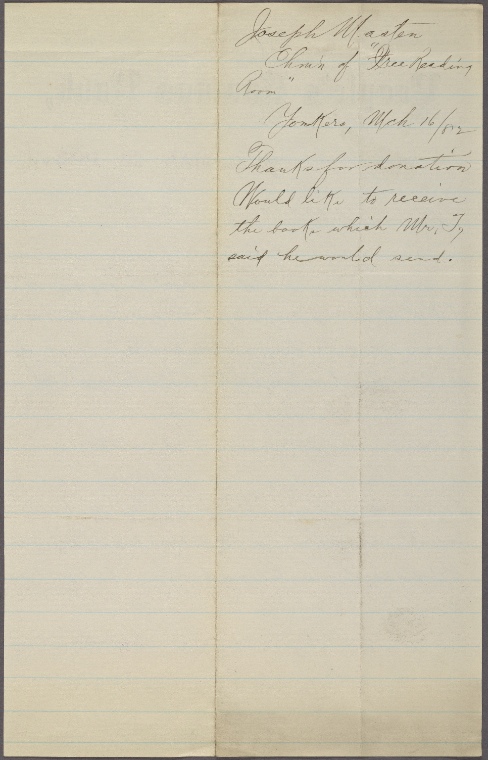 Joseph Masten
Chm'n of "Free Reading
Room"
Yonkers, Mch 16/82
Thanks for donation
Would like to receive
the books which Mr. T,
said he would send.